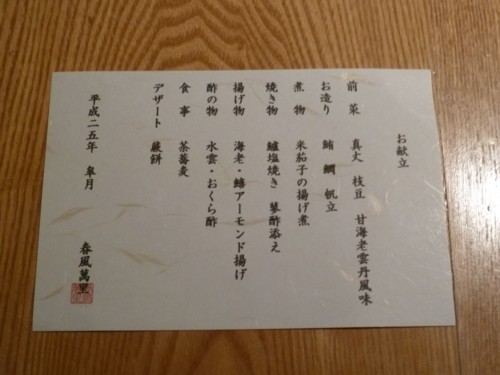 お献立
前菜 真丈 枝豆 甘海老雲丹風味
お造り 鮪 鯛 帆立
煮物 米茄子の揚げ煮
焼き物 鱸塩焼き 蓼酢添え
揚げ物 海老・鱚アーモンド揚げ
酢の物 水雲・おくら酢
食事 茶蕎麦
デザート 蕨餅
平成二五年 皐月
春風萬里